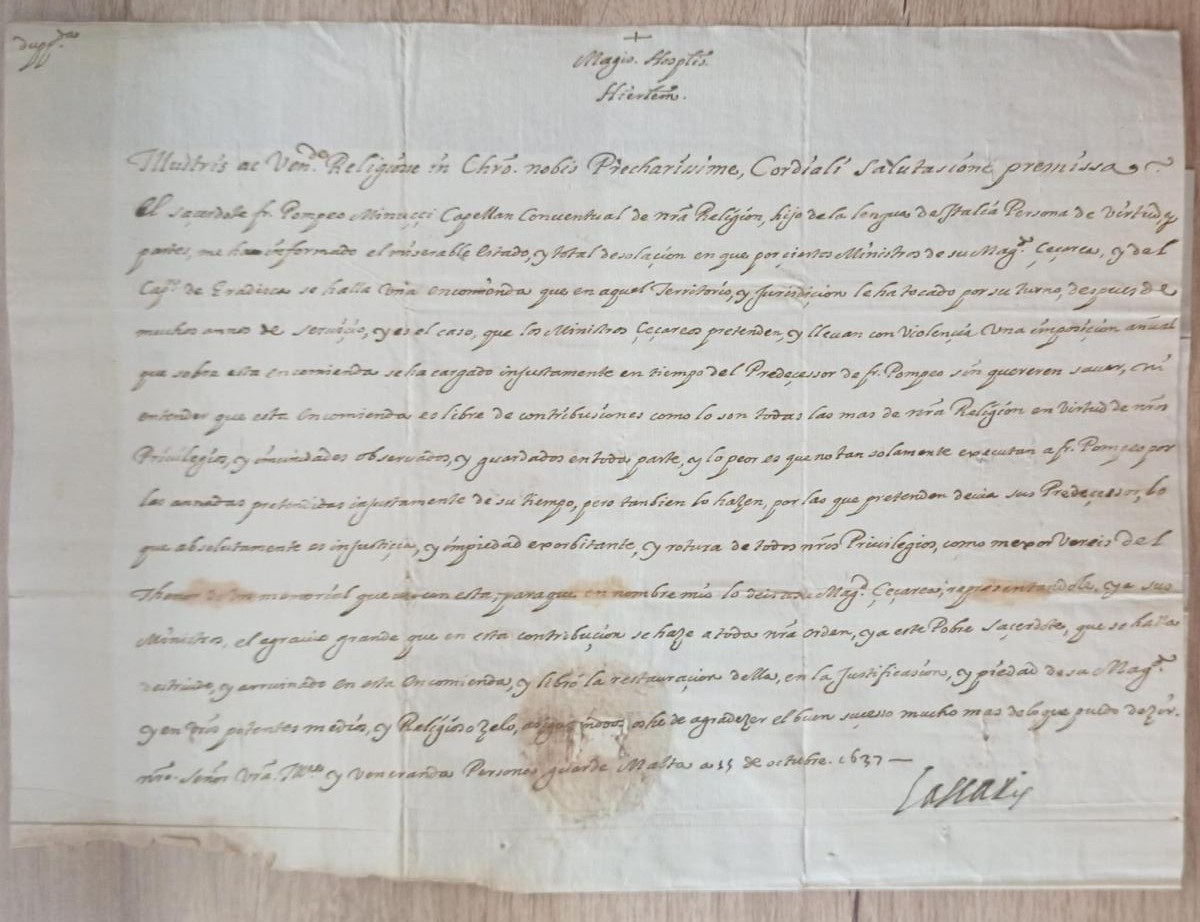 dupp.da
+
Magis. Hosplis.
Hierlem.
Illustris ac Ven.de Religiose in Chro. nobis Precharissime, Cordiali Salutascione premissa,
El saçerdote fr. Pompeo Minuçci Capellan Conventual de nra Religion, hijo de la lengua de Italia Persona de virtud, y
partes, me ha informado el miserable Estado, y total desolaçion en que por çiertos Ministros de su Mag.d Çeçarea, y del
Cap.n de Gradisca se halla una encomienda que en aquel Territorio, y Jurisdiçion le ha tocado por su turno, despues de
muchos annos de serviçio, y es el caso, que los Ministros Çeçareos pretenden, y llevan con violençia una imposiçion añual
que sobra esta encomienda se ha cargado injustamente en tiempo del Predeçessor de fr. Pompeo sin quereren saver, ni
entender que esta encomienda es libre de contribusiones como lo son todas las mas de nra Religion en virtud de nros
Privilegios, y imunidades observados, y guardados en toda parte, y lo peor es que no tan solamente executan a fr. Pompeo por
las annadas pretendidas injustamente de su tiempo, pero tanbien lo hazen, por las que pretenden devia sus Predeçessor, lo
que absolutamente es injustiçia, y impiedad exorbitante, y rotura de todos nros Privilegios, como mexor vereis del
Thenor de un memorial que va con esta, para que en nombre mio lo deis a su Mag.d Çeçarea, representandole, y a sus
Ministros, el agravio grande que en esta contribuçion se haze a toda nra orden, y a este Pobre Saçerdote, que se halla
destruido, y arruinado en esta encomienda, y libró la restauraçion della, en la Justificasion, y piedad de su Mag.d
y en vros potentes medios, y Religioso zelo, os he de agradezer el buen suçesso mucho mas de lo que puedo dezir.
nro. Señor vra. Ill.re y Veneranda Persona guarde Malta a 15 de octubre. 1637 —
Lascaris